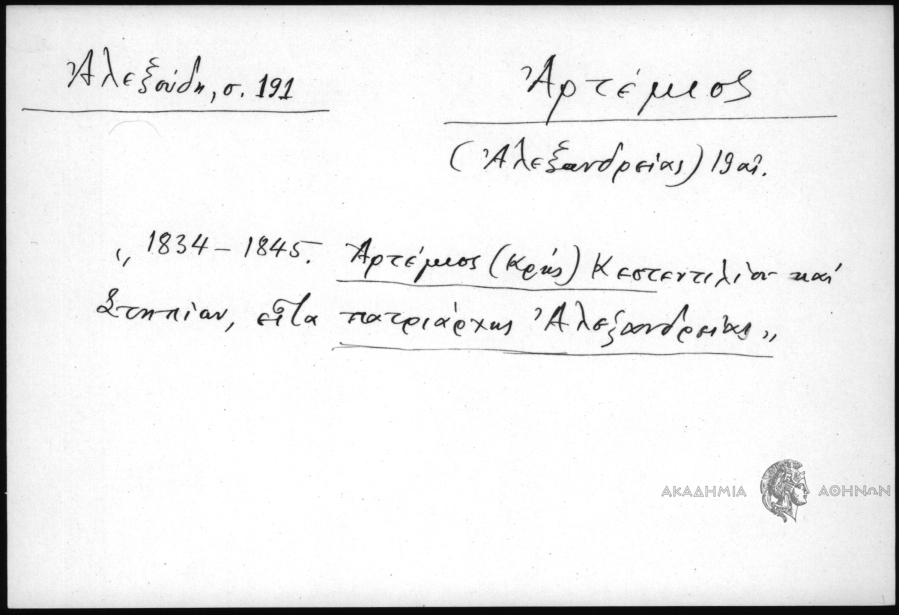 Ἀλεξούδη, σ. 191
Ἀρτέμιος
(Ἀλεξανδρείας) 19 αἰ.
„ 1834 – 1845. Ἀρτέμιος (Κρής) Κεστεντιλίου καί
Στηπίων, εἶτα πατριάρχης Ἀλεξανδρείας „
ΑΚΑΔΗΜΙΑ ΑΘΗΝΩΝ